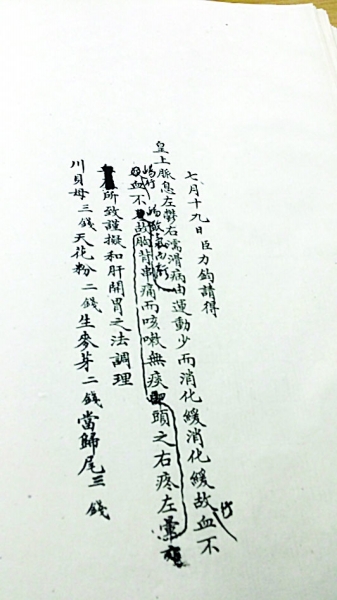 七月十九日臣力鈞請得
皇上脈息左鬱右濡滑病由運動少而消化緩消化緩故血不行
血不故胸背串痛而咳嗽無痰即頭之右疼左
所致謹擬和肝開胃之法調理
川貝母三錢天花粉二錢生麥芽二錢當歸尾三錢